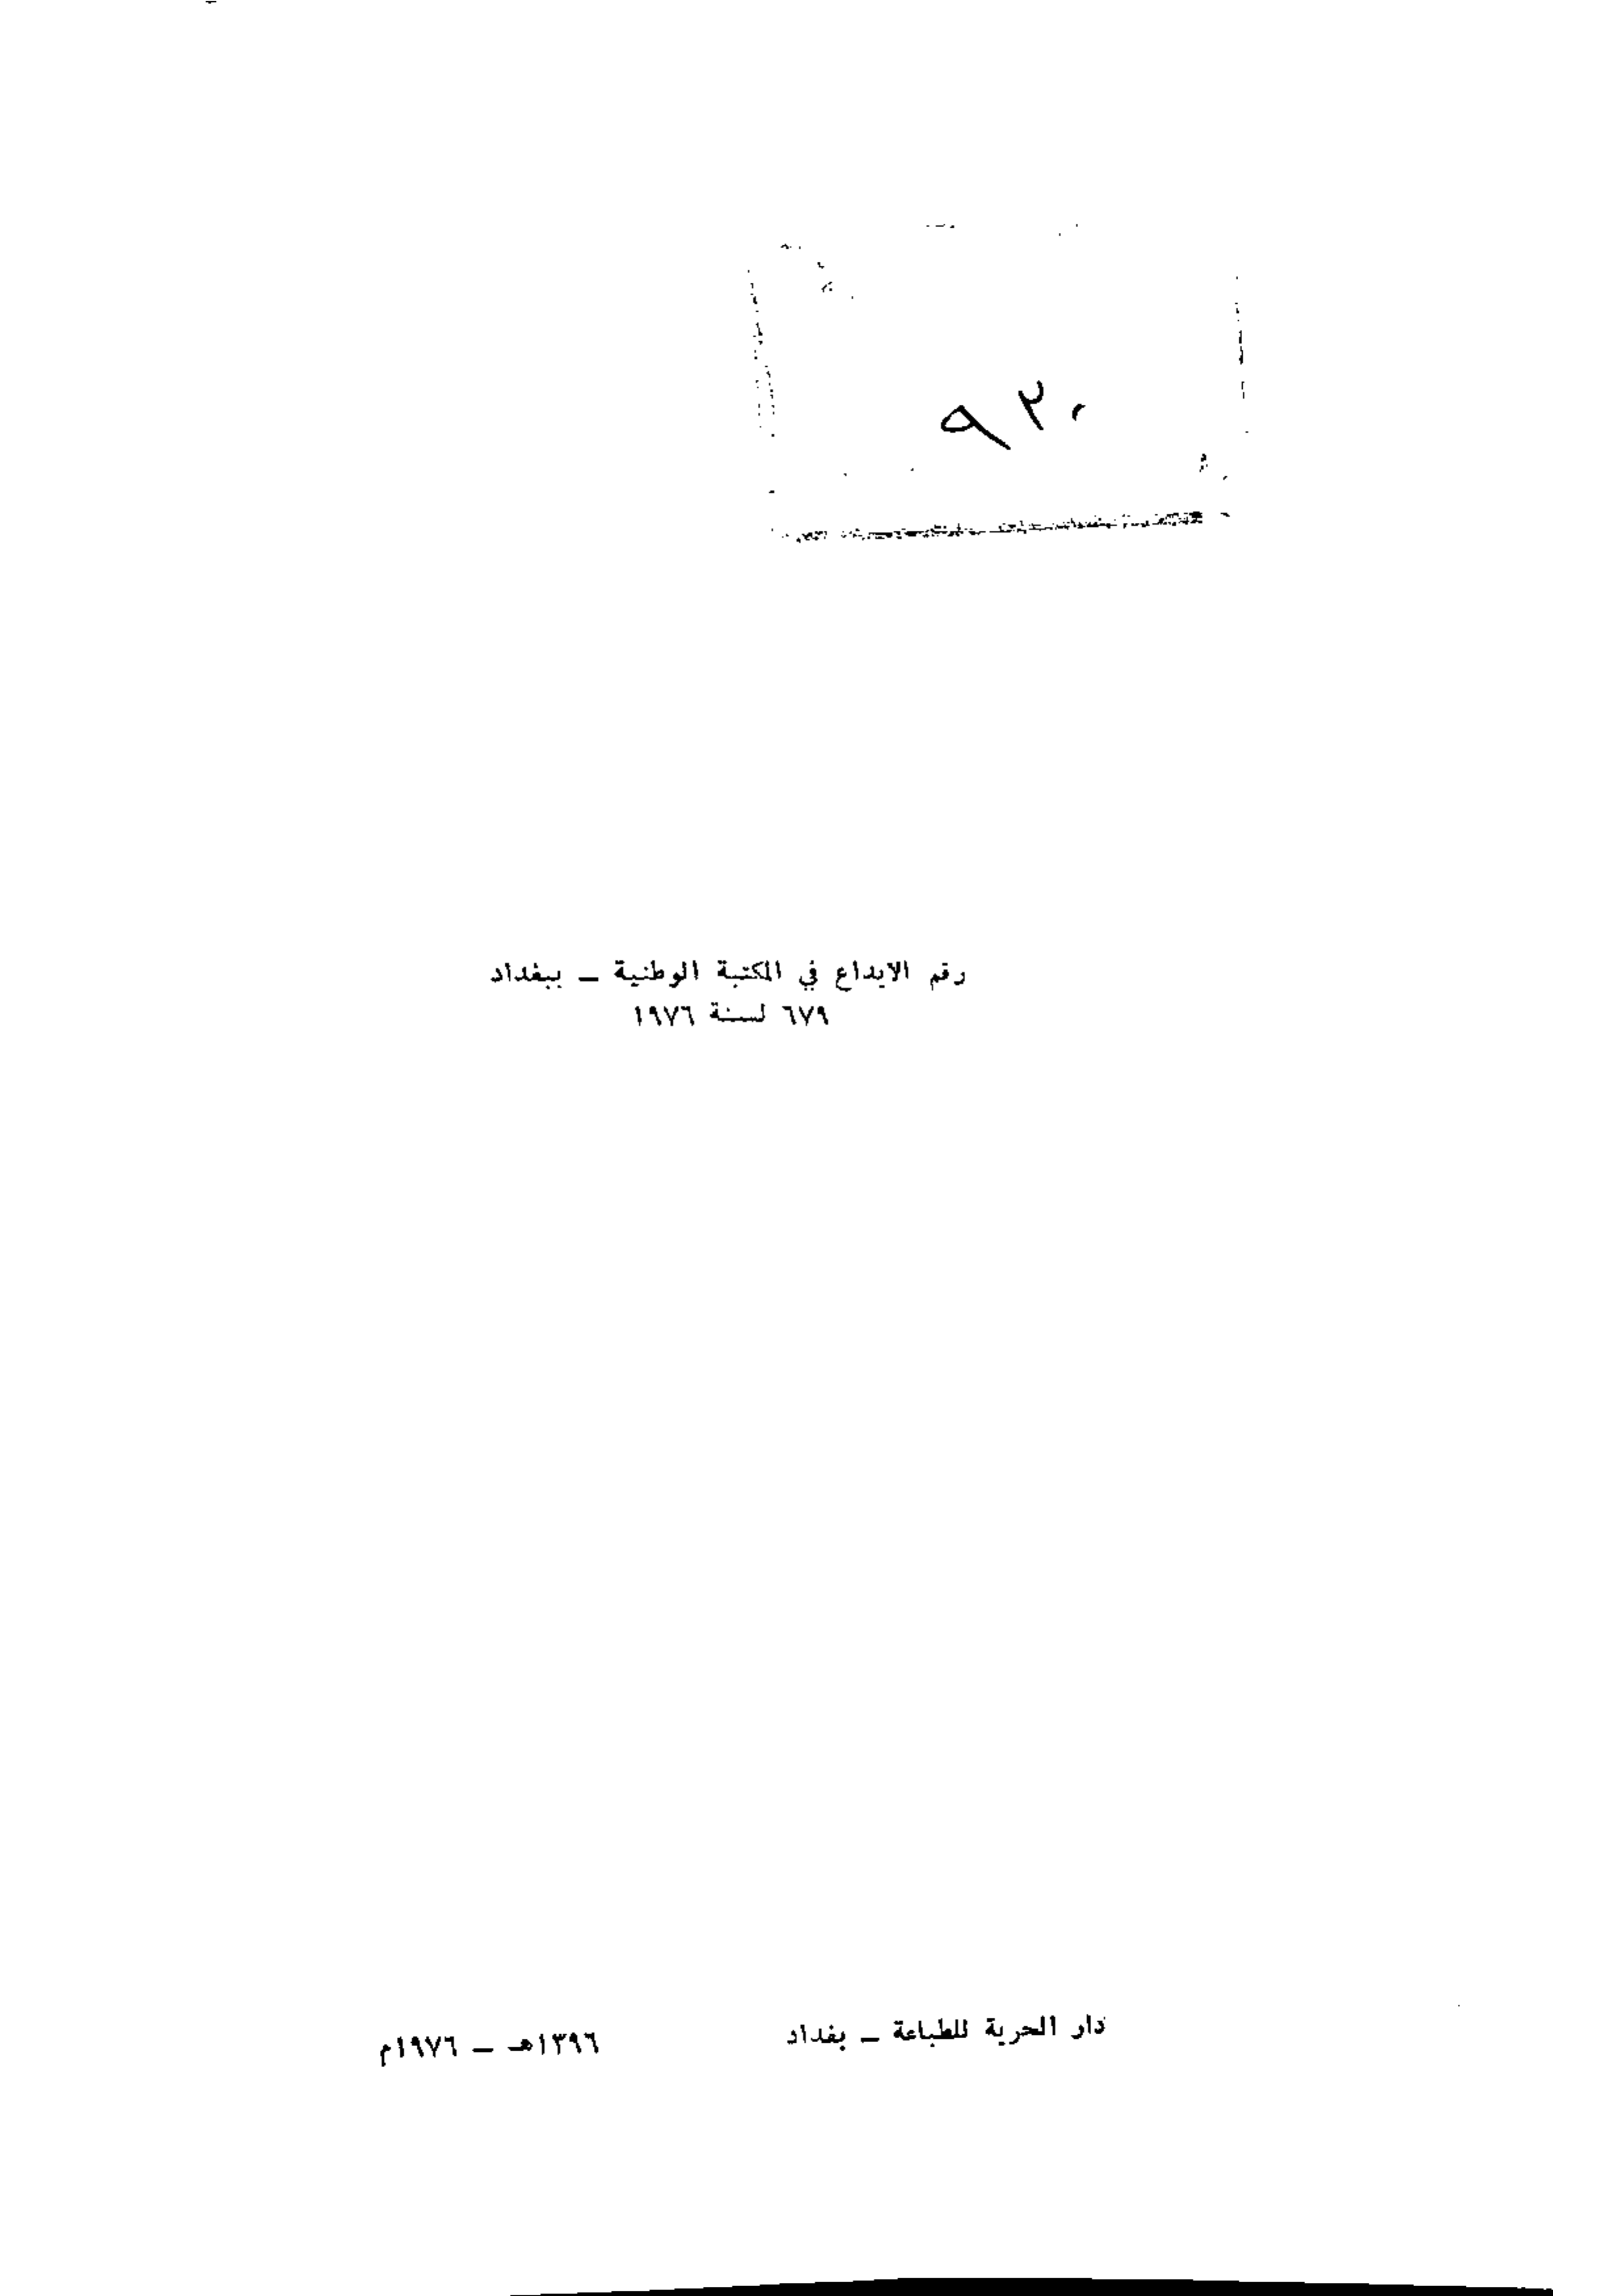 ٩٢٠
رقم الايداع في المكتبة الوطنية ــ ببغداد
٦٧٩ لسنة ١٩٧٦
دار الحرية للطباعة ــ بغداد ١٣٩٦هـ ــ ١٩٧٦م